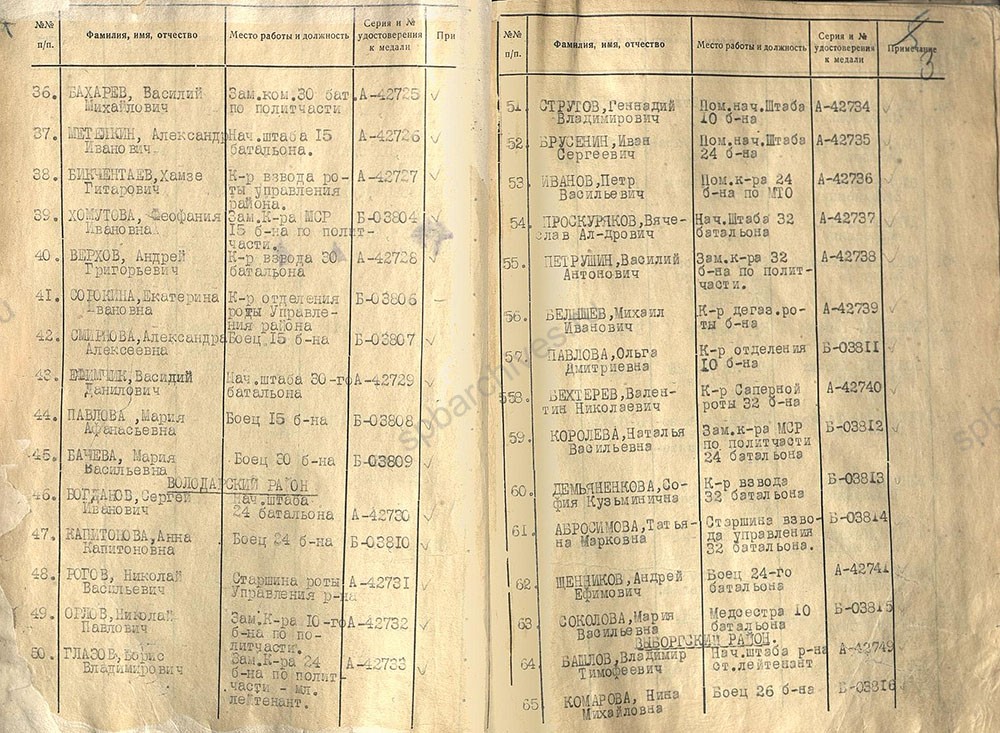 №№ п/п. Фамилия, имя, отчество Место работы и должность Серия и № удостоверения к медали При
36. БАХАРЕВ, Василий Зам.ком.30 бат. А-42725
Михайлович по политчасти
37. МЕТЕЛКИН, Александр Нач.штаба 15 А-42726
Иванович батальона.
38. БИКЧЕНТАЕВ,Хамзе К-р взвода ро- А-42727
Гитарович ты управления
района.
39. ХОМУТОВА, Феофания Зам.К-ра МСР Б-03804
Ивановна 15 б-на по полит-
части.
40. ВЕРХОВ, Андрей К-р взвода 30 А-42728
Григорьевич батальона
41. СОРОКИНА,Екатерина К-р отделения Б-03806
Ивановна роты Управле-
ния района
42. СМИРНОВА,Александра Боец 15 б-на Б-03807
Алексеевна
43. ЕФИМЧИК,Василий Нач.штаба 30-го А-42729
Данилович батальона
44. ПАВЛОВА ,Мария Боец 15 б-на Б-03808
Афанасьевна
45. БАЧЕВА, Мария Боец 30 б-на Б-03809
Васильевна
ВОЛОДАРСКИЙ РАЙОН
46. БОГДАНОВ,Сергей Нач.штаба
Иванович 24 батальона А-42730
47. КАПИТОНОВА,Анна Боец 24 б-на Б-03810
Капитоновна
48. РОГОВ, Николай Старшина роты А-42731
Васильевич Управления р-на
49. ОРЛОВ,Николай Зам.К-ра 10-го А-42732
Павлович б-на по по-
литчасти.
50. ГЛАЗОВ,Борис Зам.К-ра 24 А-42733
Владимирович б-на по полит-
части - мл.
лейтенант.
№№ п/п. Фамилия, имя, отчество Место работы и должность Серия и № удостоверения к медали Примечание
3
51. СТРУГОВ,Геннадий Пом.нач.Штаба А-42734
Владимирович 10 б-на
52. БРУСЕНИН,Иван Пом.нач.Штаба А-42735
Сергеевич 24 б-на
53. ИВАНОВ,Петр Пом.к-ра 24 А-42736
Васильевич б-на по МТО
54. ПРОСКУРЯКОВ,Вяче- Нач.Штаба 32 А-42737
слав Ал-дрович батальона
55. ПЕТРУШИН,Василий Зам.к-ра 32 А-42738
Антонович б-на по полит-
части.
56. БЕЛЫШЕВ,Михаил К-р дегаз.ро- А-42739
Иванович ты б-на
57. ПАВЛОВА,Ольга К-р отделения Б-03811
Дмитриевна 10 б-на
558. БЕХТЕРЕВ,Вален- К-р Саперной А-42740
тин Николаевич роты 32 б-на
59. КОРОЛЕВА,Наталья Зам.к-ра МСР Б-03812
Васильевна по политчасти
24 батальона
60. ДЕМЬЯНЕНКОВА,Со- К-р взвода Б-03813
фия Кузьминична 32 батальона
61. АБРОСИМОВА,Татья- Старшина взво- Б-03814
на Марковна да управления
32 батальона.
62. ЩЕННИКОВ,Андрей Боец 24-го А-42741
Ефимович батальона
63. СОКОЛОВА,Мария Медсестра 10 Б-03815
Васильевна батальона
ВЫБОРГСКИЙ РАЙОН.
64. БАШЛОВ,Владимир Нач.штаба р-на А-42749
Тимофеевич ст.лейтенант
65. КОМАРОВА, Нина Боец 26 б-на Б-03816
Михайловна
spbarchives